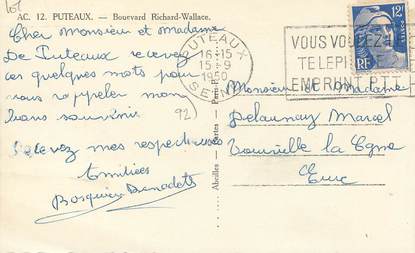 AC. 12. PUTEAUX. — Bouevard Richard-Wallace.
Cher Monsieur et madame
De Puteaux recevez
ces quelques mots pour
vous rappeler mon
bons souvenir
92)
Recevez mes respectueuses
Amitiées
PUTEAUX
16-15
15-9
1950
SEINE
VOUS VOULEZ
TELEPH
EMPRUNT P.T.T
12F
RF
Abeilles
Cartes
Paris
Monsieur et Madame
Delaunay Marcel
Tourville la
Eure